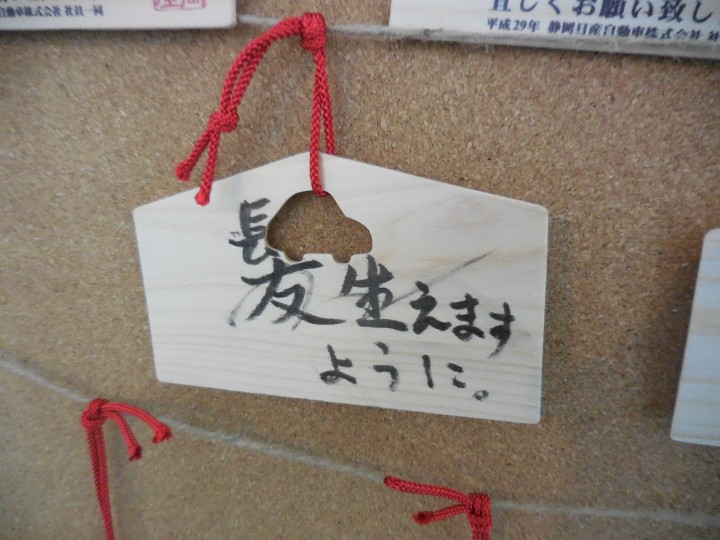 動車株式会社 社員一同
宜しくお願い致し
平成29年 静岡日産自動車株式会社 社
髪生えます
ように。